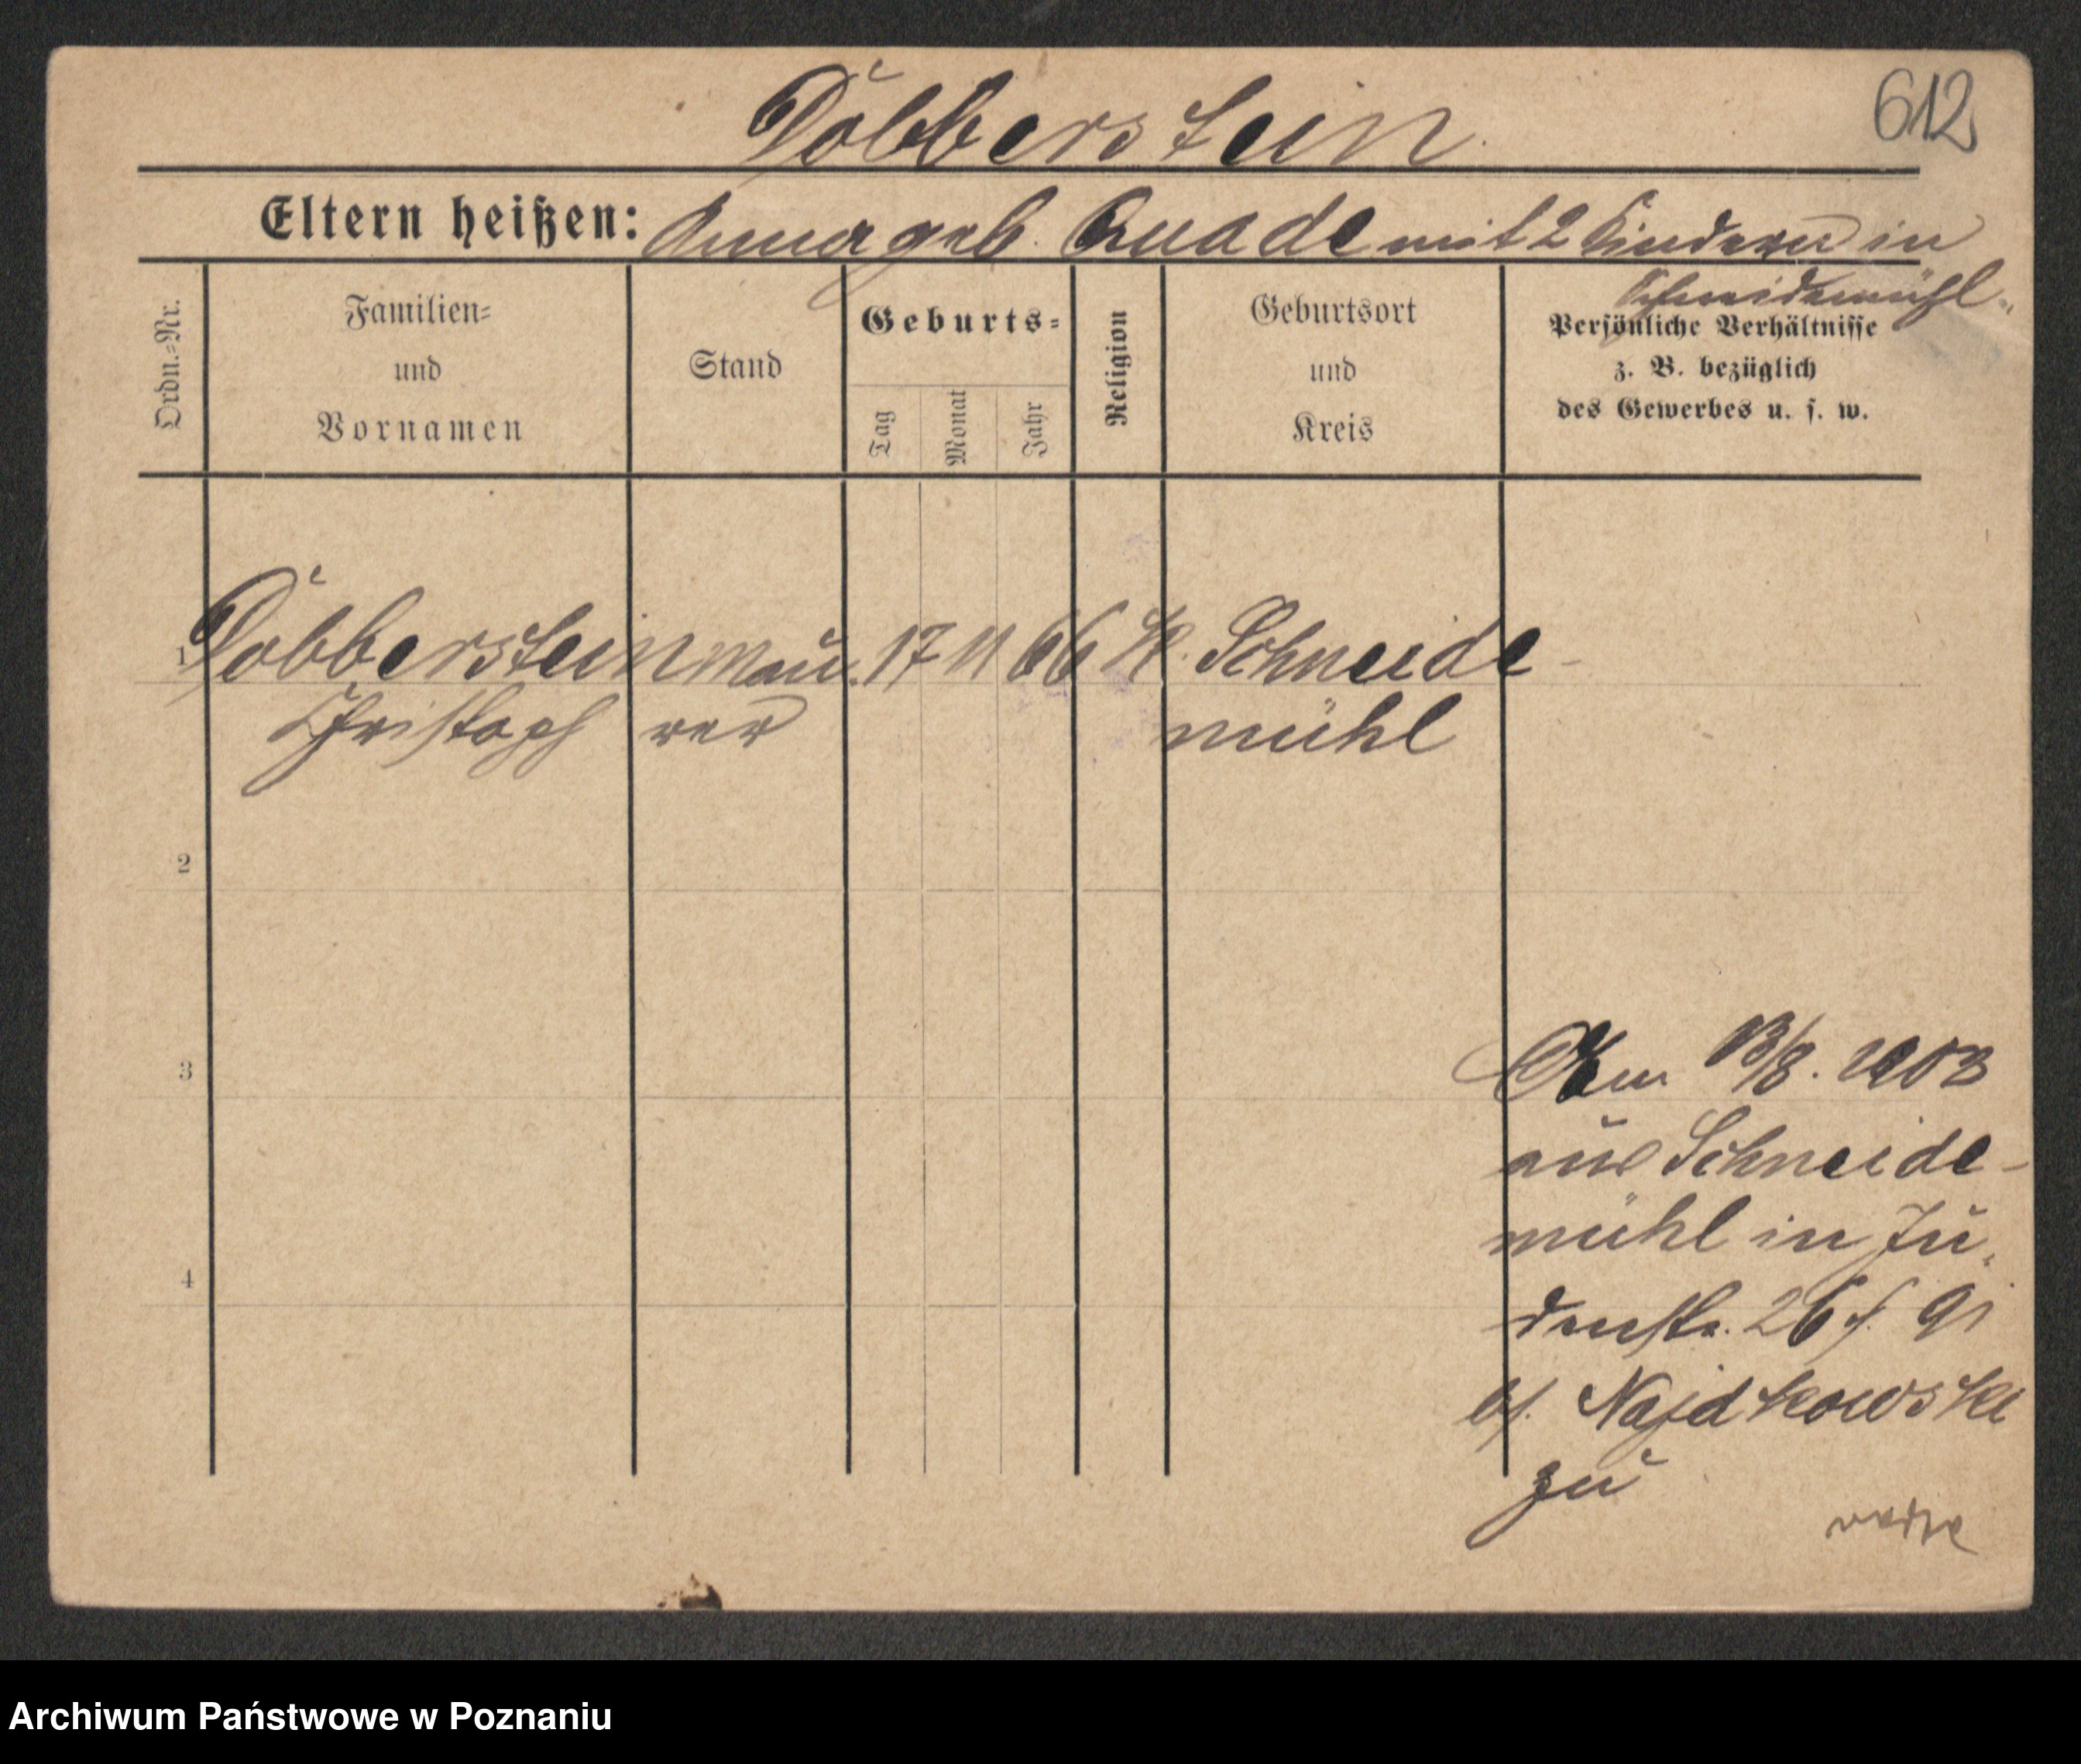 Döbberstein
612
Eltern heißen: Anna geb. Quade mit 2 Kindern in
Schneidemühl.
Ordn.=Nr.
Familien=
und
Vornamen
Stand
Geburts=
Tag
Monat
Jahr
Religion
Geburtsort
und
Kreis
Persönliche Verhältnisse
z. B. bezüglich
des Gewerbes u. s. w.
1 Döbberstein Mau. 17 11 66 K. Schneide-
Christoph rer mühl
2
3
Am 13/8. 1903
aus Schneide-
mühl in Ju-
denstr. 26
Najdkowski
zu
4
Archiwum Państwowe w Poznaniu